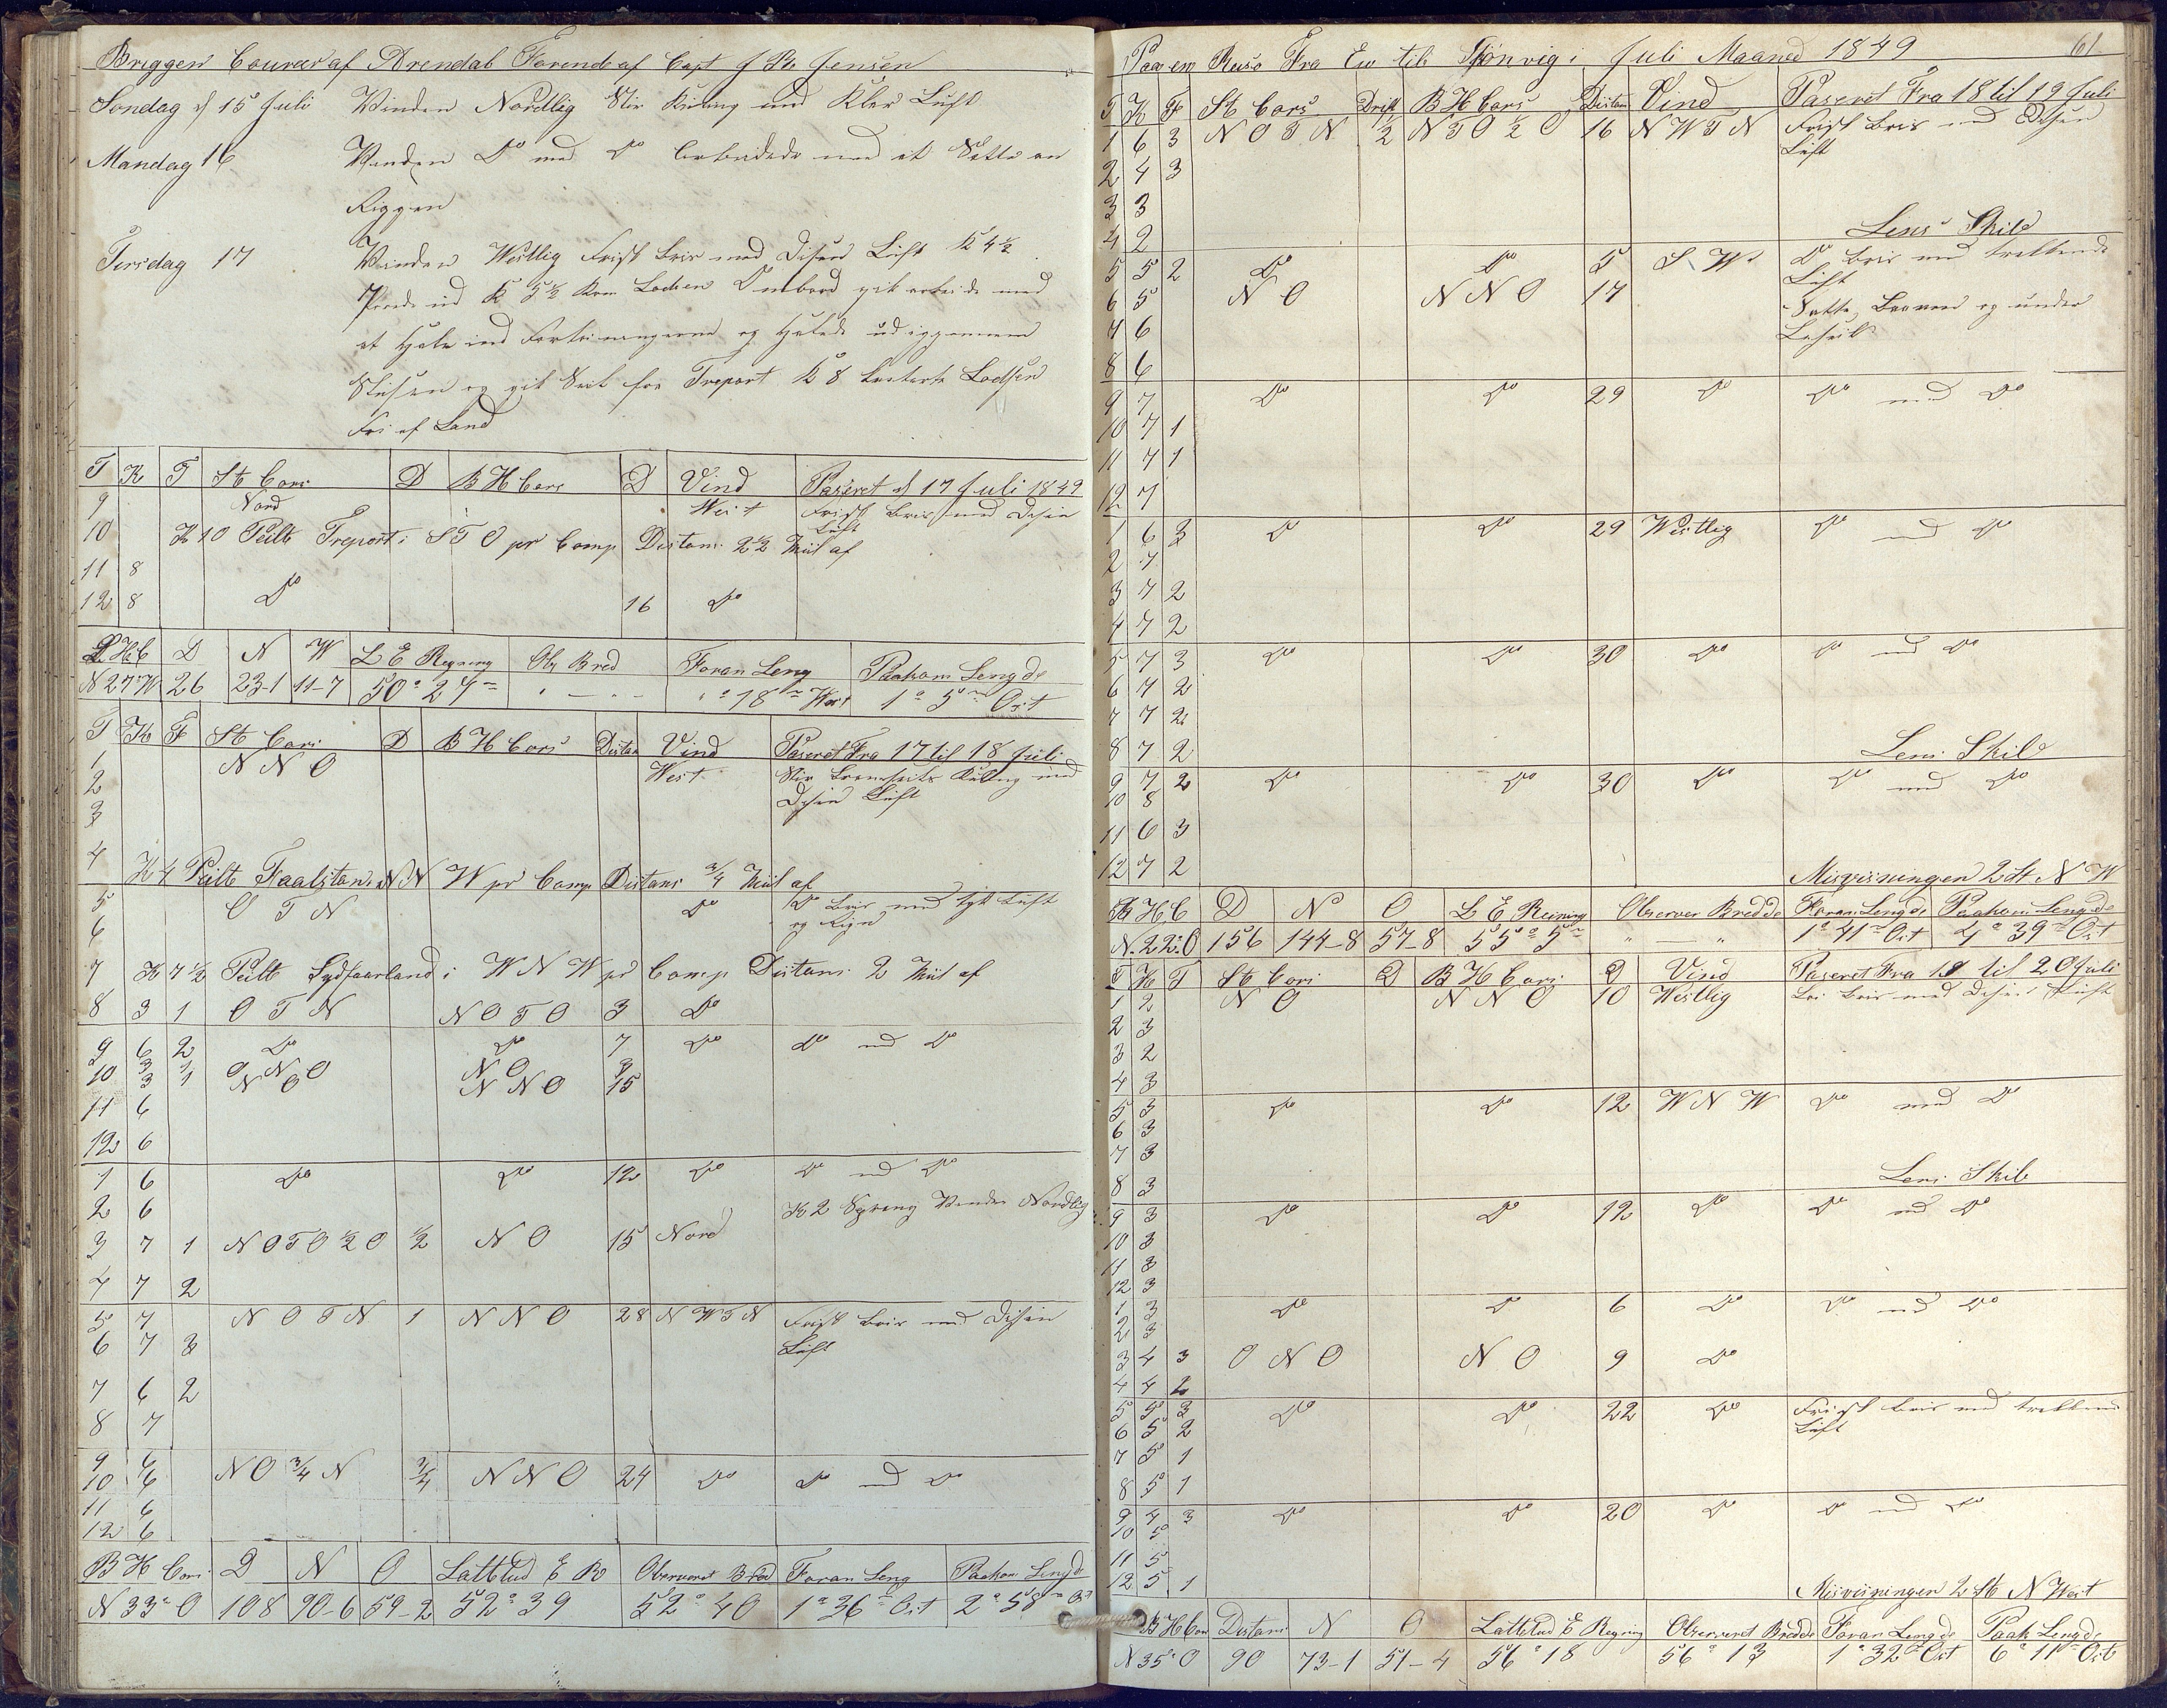 Briggen Courer af Arendal Førende af Capt J Bs Jensen
Søndag d 15 Juli Vinden Nordlig Stiv Kuling med Klar Luft
Mandag 16 Vinden Do med Do Arbeidede med at Sette an
Riggen
Tirsdag 17 Vinden Westlig Frisk Bris med Disen Luft K 4½
K 5½ Kom Lodsen Ombord gik arbeide med
at Hale ind Fortøiningerne og Halede ud igjennem
Slusen og gik Seil fra Treport K 8 Lodsen
Fri af Land
T K F St Cors D BH Cors D Vind Paseret d 17 Juli 1849
9 Nord West Frisk Bris med Disen
Luft
10 K 10 Peilte Treport i STO pr Comp Distans 2½ Miil af
11 8
12 8 Do 16 Do
B H C D N W L E Regning Obs Bred Foran Leng Paakom Lengde
N 27° W 26 23-1 11-7 50° 27 " — " " ° 18 West 1° 5 Ost
T K F St Cors D BH Cors Distan Vind Paseret Fra 17 til 18 Juli
1 N N O West Stiv Bramseils Kuling med
2 Disen Luft
3
4 K 4 Peilte Faalstan i N N W pr Comp Distans ¾ Miil af
5 O T N Do Do Bris med tyk Luft
6 og Rign
7 K 7½ Peilte Sydfaarland i W N W pr Comp Distans 2 Miil af
8 3 1 O T N N O T O 3 Do
9 6 2 Do Do 7 Do Do med Do
10 3 O N O N O 3
3 1 N O N N O 15
11 6
12 6
1 6 Do Do 12 Do Do med Do
2 6 K 2 Sprang Vinden Nordlig
3 7 1 N O T O ½ O ½ N O 15 Nord
4 7 2
5 7 N O T N 1 N N O 28 N W T N Frisk Bris med Disen
6 7 3 Luft
7 6 2
8 7
9 6
10 6 N O ¾ N ¾ N N O 24 Do Do med Do
11 6
12 6
B H Cors D N O Lattetud E R Observeret Bred Foran Leng Paakom Lengde
N 33° O 108 90-6 59-2 52° 39 52° 40 1° 36 Ost 2° 58 Ost
Paa en Reise Fra Eu til Hjønvig i Juli Maaned 1849 61
T K F St Cors Drift B H Cors Distan Vind Paseret Fra 18 til 19 Juli
1 6 3 N O T N ½ N T O ½ O 16 N W T N Frisk Bris med Disen
Luft
2 4 3
3 3
4 2 Lens Skib
5 5 2 Do Do 5 S W Do Bris med trekkende
Luft
6 5 N O N N O 17 Satte Bovened og under
7 6 Leseil
8 6
9 7 Do Do 29 Do Do med Do
10 7 1
11 7 1
12 7
1 6 3 Do Do 29 Westlig Do med Do
2 7
3 7 2
4 7 2
5 7 3 Do Do 30 Do Do med Do
6 7 2
7 7 2
8 7 2 Lens Skib
9 7 2 Do Do 30 Do Do med Do
10 8
11 6 3
12 7 2 Misvisningen 2 St N W
B H C D N O L E Reining Observer Bredde Foran Lengde Paakom Lengde
N 22° O 156 144-8 57-8 55° 5 " — " 1° 41 Ost 4° 39 Ost
T K F St Cors D B H Cors D Vind Paseret Fra 19 til 20 Juli
1 2 N O N N O 10 Westlig Lei Bris med Disen Luft
2 3
3 2
4 3
5 3 Do Do 12 W N W Do med Do
6 3
7 3
8 3 Lens Skib
9 3 Do Do 12 Do Do med Do
10 3
11 3
12 3
1 3 Do Do 6 Do Do med Do
2 3
3 4 3 O N O N O 9 Do
4 4 2
5 5 3 Do Do 22 Do Frisk Bris med trekkend
6 5 2 Luft
7 5 1
8 5 1
9 4 3 Do Do 20 Do Do med Do
10 5
11 5
12 5 1 Misvisningen 2 St N West
B H Cors Distans N O Lattetud E Regning Observeret Bredde Foran Lengde Paak Lengde
N 35° O 90 73-1 51-4 56° 18 56° 13 1° 32 Ost 6° 11 Ost